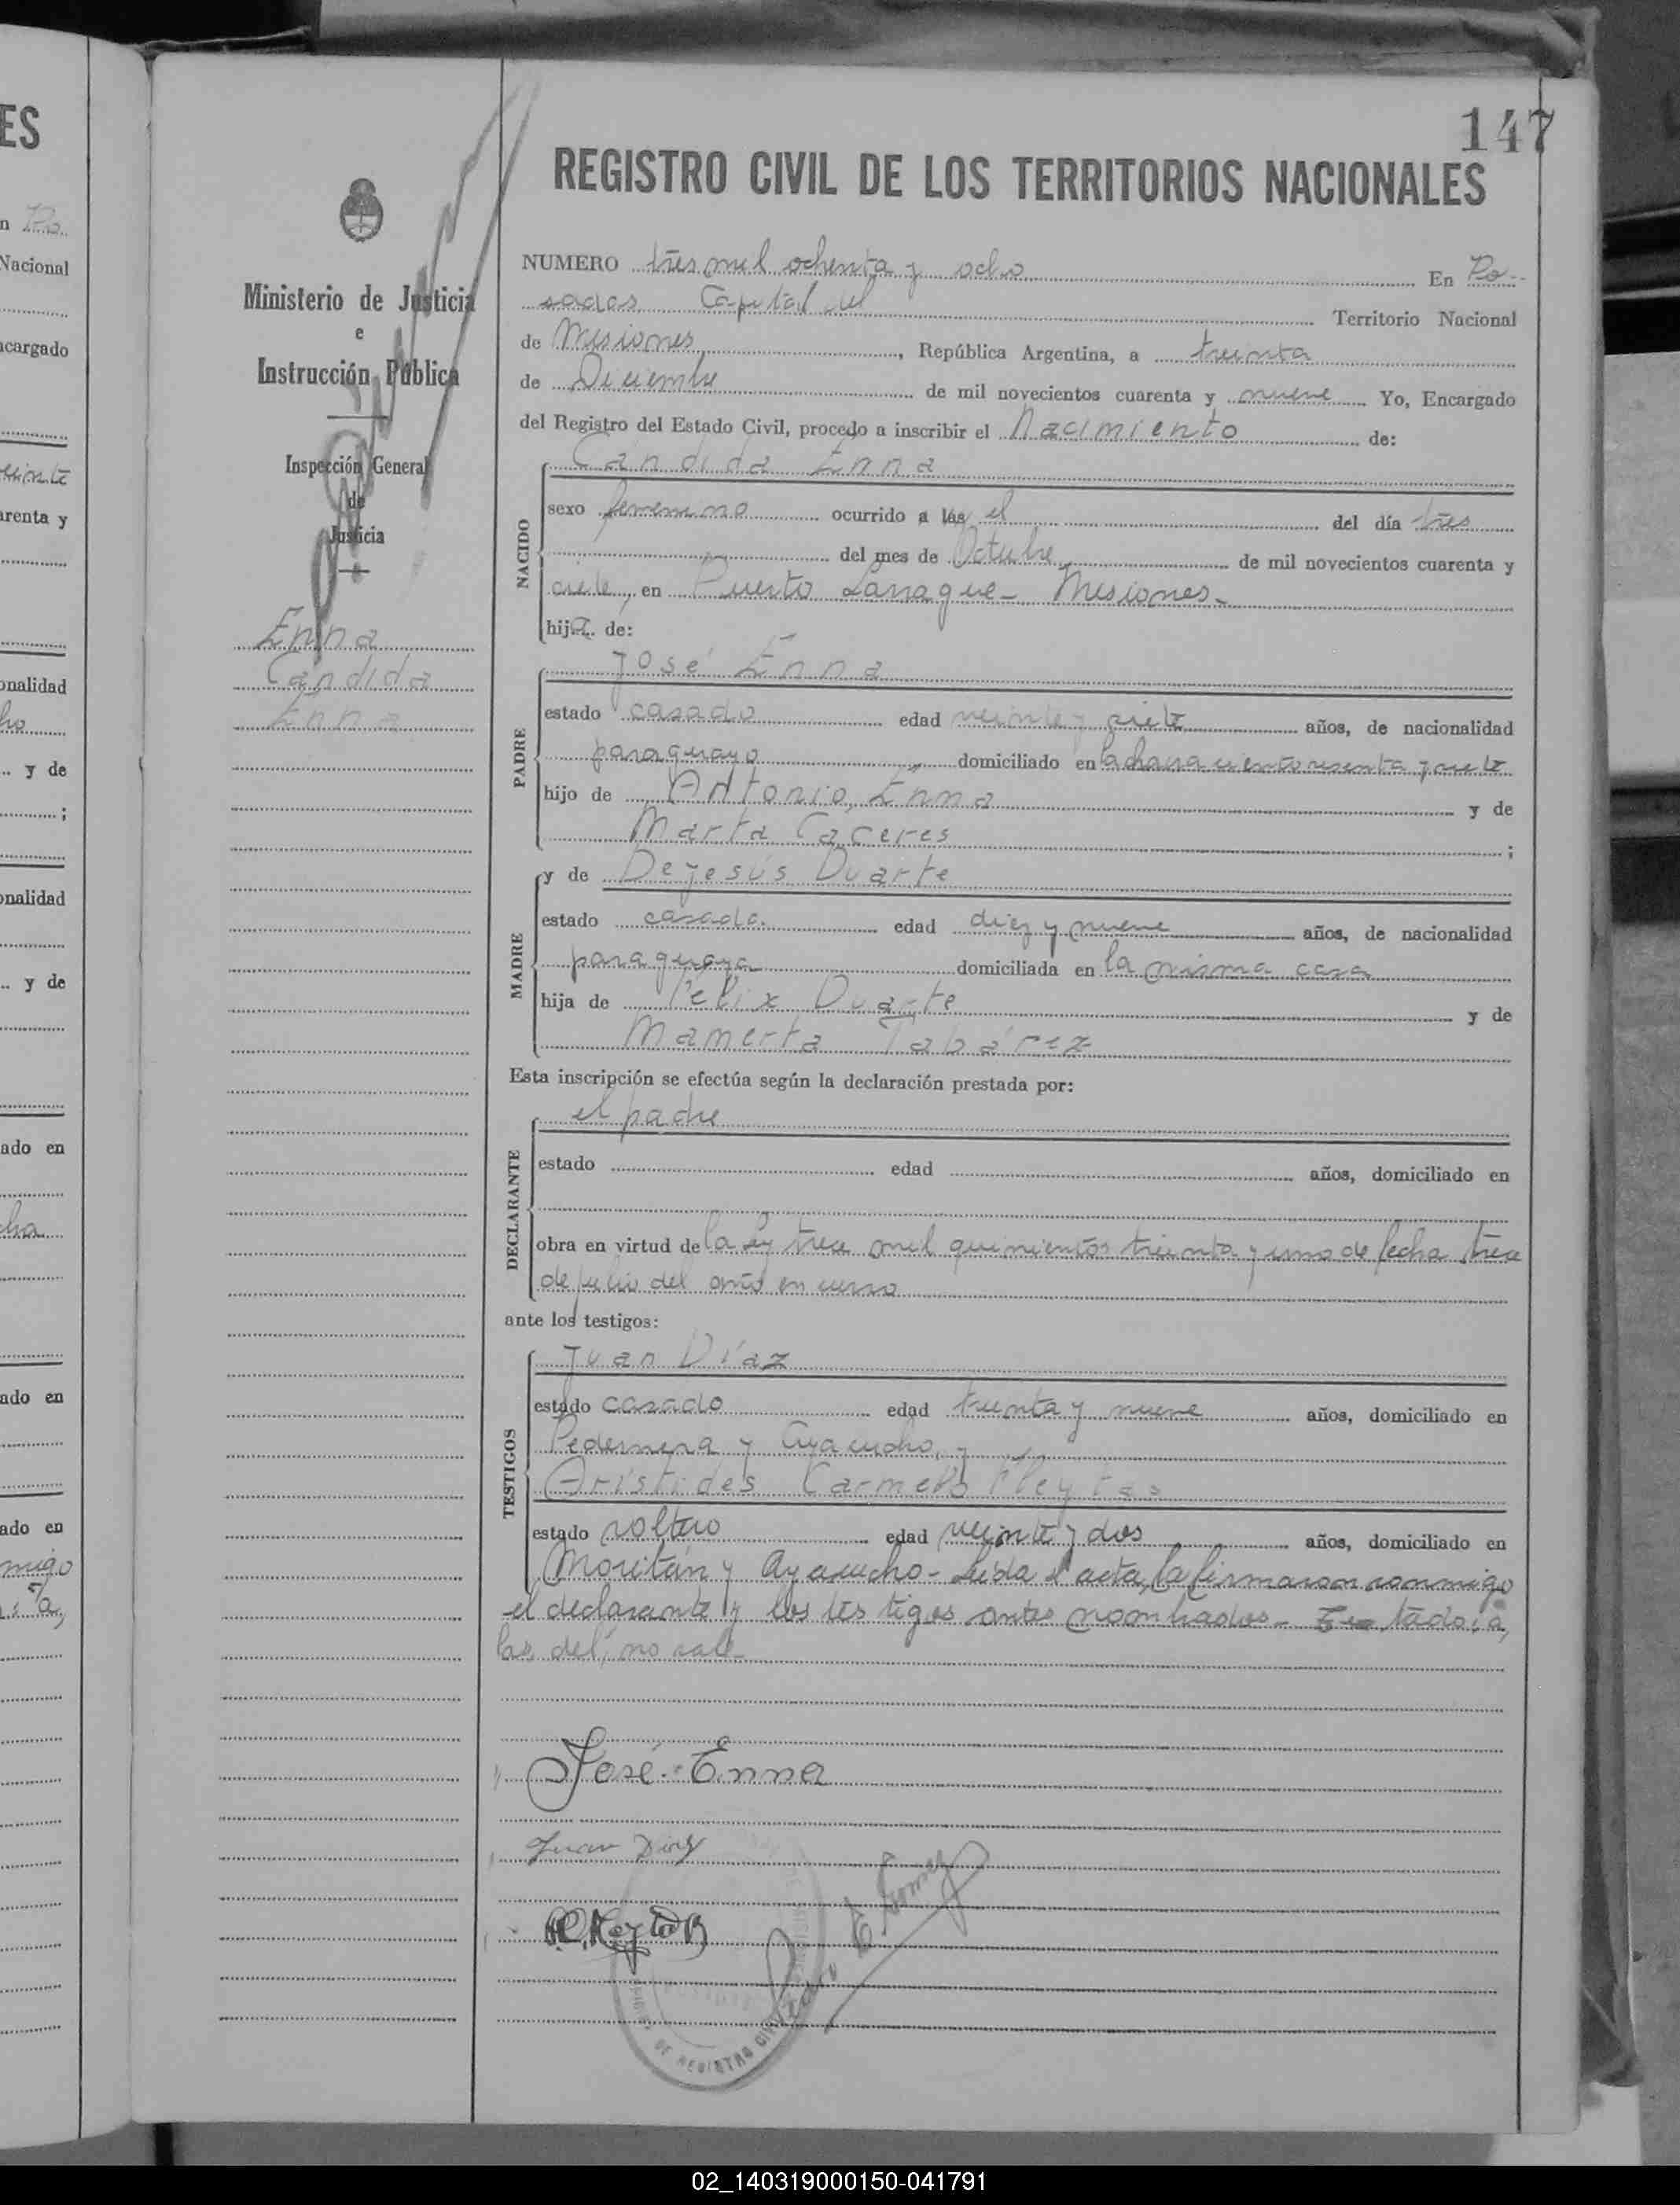 147
REGISTRO CIVIL DE LOS TERRITORIOS NACIONALES
Ministerio de Justicia
e
Instrucción Pública
Inspección General
de
Justicia
Enna
Cándida
Enna
NUMERO tres mil ochenta y ocho En Po-
sadas Capital del Territorio Nacional
de Misiones, República Argentina, a treinta
de Diciembre de mil novecientos cuarenta y nueve Yo, Encargado
del Registro del Estado Civil, procedo a inscribir el Nacimiento de:
NACIDO
Cándida Enna
sexo femenino ocurrido a las el del día tres
del mes de Octubre de mil novecientos cuarenta y
siete, en Puerto Lanague - Misiones -
hija de:
PADRE
José Enna
estado casado edad veinte y siete años, de nacionalidad
paraguayo domiciliado en la chacra ciento y siete
hijo de Antonio Enna y de
Marta Caceres ;
MADRE
y de Dejesús Duarte
estado casada edad diez y nueve años, de nacionalidad
paraguaya domiciliada en la misma casa
hija de Félix Duarte y de
Mamerta Tabárez
Esta inscripción se efectúa según la declaración prestada por:
DECLARANTE
el padre
estado edad años, domiciliado en
obra en virtud de la ley trece mil quinientos treinta y uno de fecha trece
de julio del año en curso
ante los testigos:
TESTIGOS
Juan Díaz
estado casado edad treinta y nueve años, domiciliado en
Pedernera y Ayacucho, y
Arístides Carmelo Fleytas
estado soltero edad veinte y dos años, domiciliado en
Moritán y Ayacucho - Leída el acta, la firmaron conmigo
el declarante y los testigos antes nombrados - Testado: a,
las, del, no vale -
José Enna
Juan Díaz
DE REGISTRO CIVIL
ES
n Po
Nacional
ncargado
veinte
arenta y
onalidad
ho
y de
;
onalidad
y de
ado en
cha
ado en
ado en
migo
a,
02_140319000150-041791